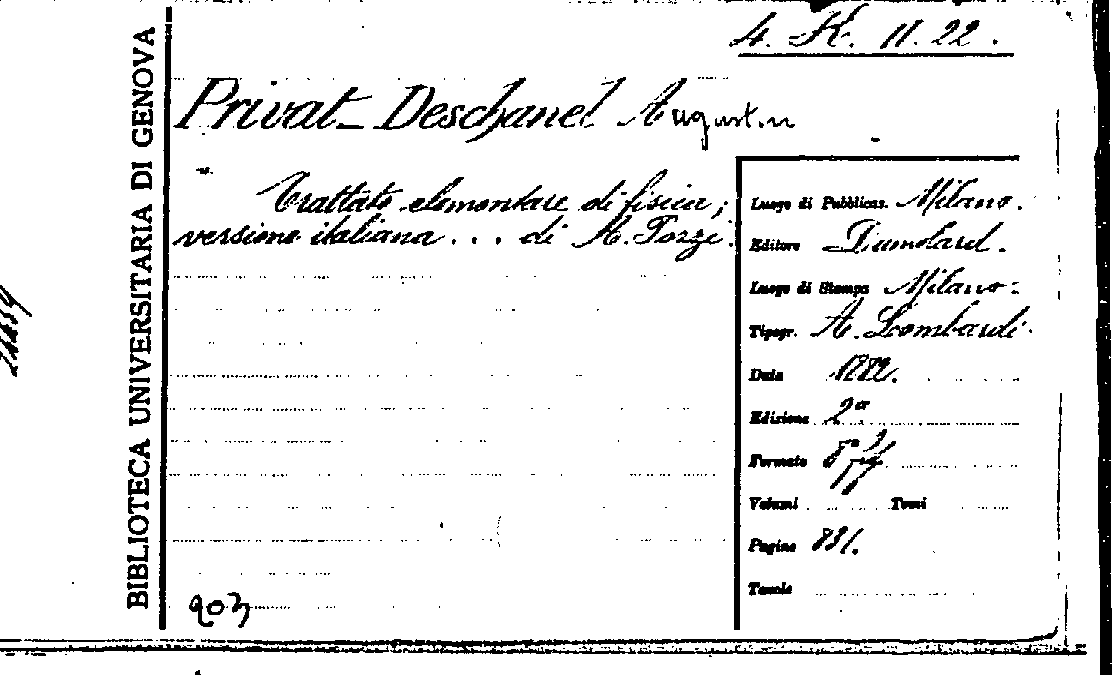 4. K. 11. 22.
BIBLIOTECA UNIVERSITARIA DI GENOVA
Privat-Deschanel Augustin
Trattato elementare di fisica;
versione italiana . . . di A. Pozzi.
Luogo di Pubblicaz. Milano.
Editore Dumolard.
Luogo di Stampa Milano.
Tipogr. A. Lombardi.
Data 1882.
Edizione 2a
Formato 8°
Volumi Tomi
Pagine 831.
Tavole
903